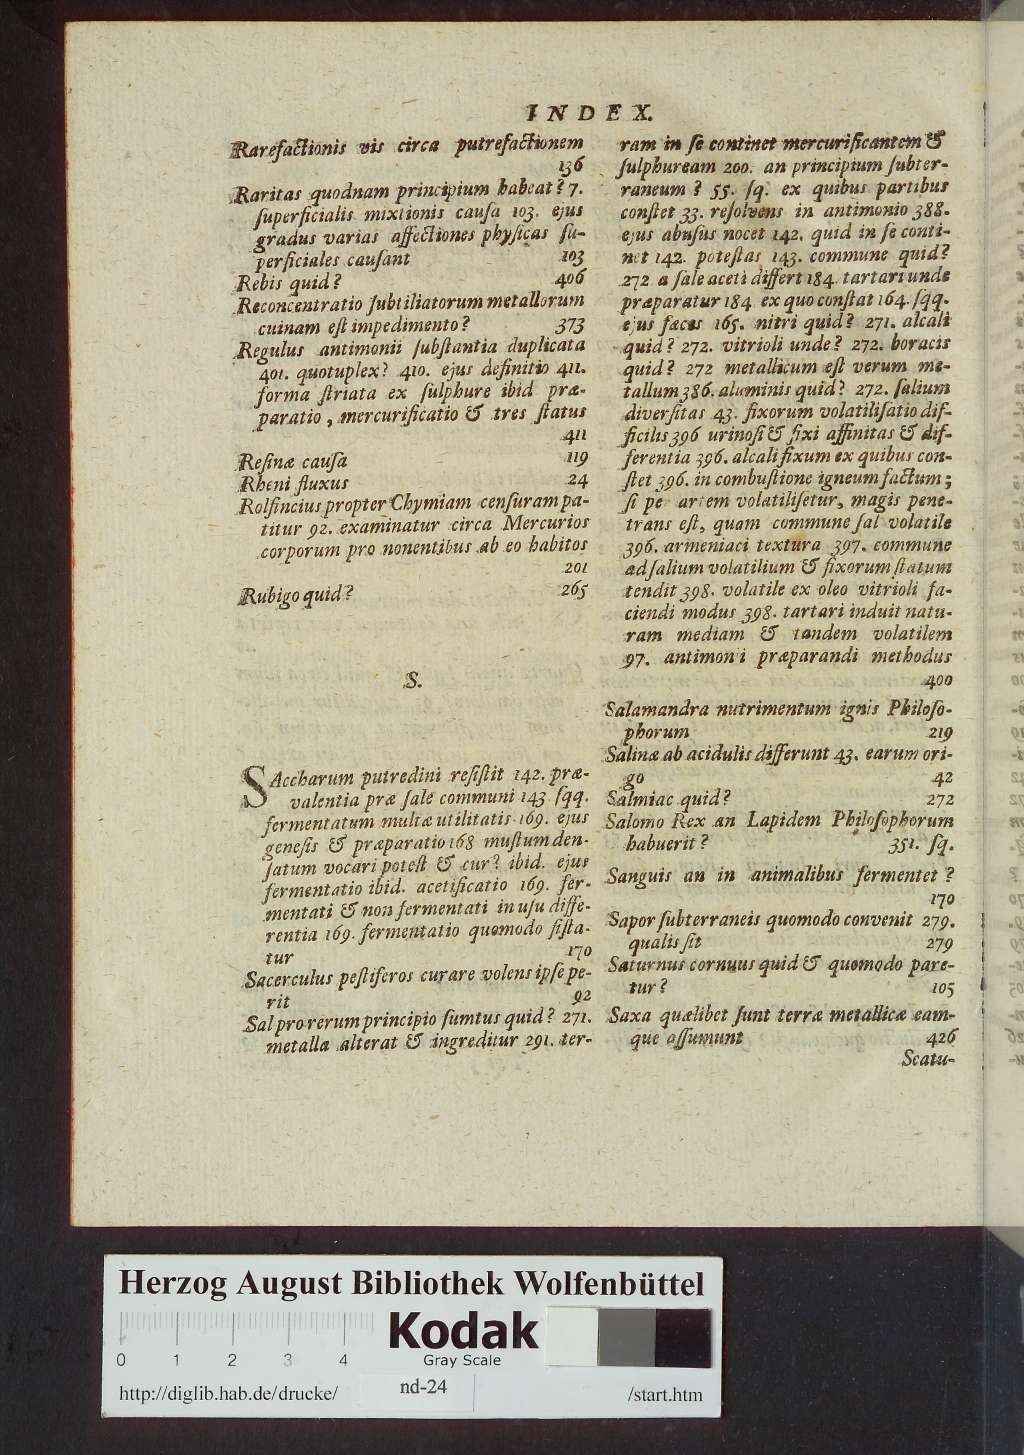 INDEX.
Rarefactionis vis circa putrefactionem
136
Raritas quodnam principium habeat? 7.
ſuperficialis mixtionis cauſa 103. ejus
gradus varias affectiones phyſicas ſu-
perficiales cauſant 103
Rebis quid? 406
Reconcentratio ſubtiliatorum metallorum
cuinam eſt impedimento? 373
Regulus antimonii ſubſtantia duplicata
401. quotuplex? 410. ejus definitio 411.
forma ſtriata ex ſulphure ibid præ-
paratio, mercurificatio & tres ſtatus
411
Reſinæ cauſa 119
Rheni fluxus 24
Rolfincius propter Chymiam cenſuram pa-
titur 92. examinatur circa Mercurios
corporum pro nonentibus ab eo habitos
201
Rubigo quid? 265
S.
SAccharum putredini reſiſtit 142. præ-
valentia præ ſale communi 143 ſqq.
fermentatum multæ utilitatis 169. ejus
geneſis & præparatio 168 muſtum den-
ſatum vocari poteſt & cur? ibid. ejus
fermentatio ibid. acetificatio 169. fer-
mentati & non fermentati in uſu diffe-
rentia 169. fermentatio quomodo ſiſta-
tur 170
Sacerculus peſtiferos curare volens ipſe pe-
rit 92
Sal pro rerum principio ſumtus quid? 271.
metalla alterat & ingreditur 291. ter-
ram in ſe continet mercurificantem &
ſulphuream 200. an principium ſubter-
raneum? 55. ſq. ex quibus partibus
conſtet 33. reſolvens in antimonio 388.
ejus abuſus nocet 142. quid in ſe conti-
net 142. poteſtas 143. commune quid?
272. a ſale aceti differt 184. tartari unde
præparatur 184 ex quo conſtat 164. ſqq.
ejus fæces 165. nitri quid? 271. alcali
quid? 272. vitrioli unde? 272. boracis
quid? 272 metallicum eſt verum me-
tallum 386. aluminis quid? 272. ſalium
diverſitas 43. fixorum volatiliſatio dif-
ficilis 396 urinoſi & fixi affinitas & dif-
ferentia 396. alcali fixum ex quibus con-
ſtet 396. in combuſtione igneum factum;
ſi pe artem volatiliſetur, magis pene-
trans eſt, quam commune ſal volatile
396. armeniaci textura 397. commune
ad ſalium volatilium & fixorum ſtatum
tendit 398. volatile ex oleo vitrioli fa-
ciendi modus 398. tartari induit natu-
ram mediam & tandem volatilem
97. antimonii præparandi methodus
400
Salamandra nutrimentum ignis Philoſo-
phorum 219
Salinæ ab acidulis differunt 43. earum ori-
go 42
Salmiac quid? 272
Salomo Rex an Lapidem Philoſophorum
habuerit? 351. ſq.
Sanguis an in animalibus fermentet?
170
Sapor ſubterraneis quomodo convenit 279.
qualis ſit 279
Saturnus cornuus quid & quomodo pare-
tur? 105
Saxa quælibet ſunt terræ metallicæ eam-
que aſſumunt 426
Scatu-
Herzog August Bibliothek Wolfenbüttel
Kodak
Gray Scale
0 1 2 3 4
http://diglib.hab.de/drucke/ nd-24 /start.htm